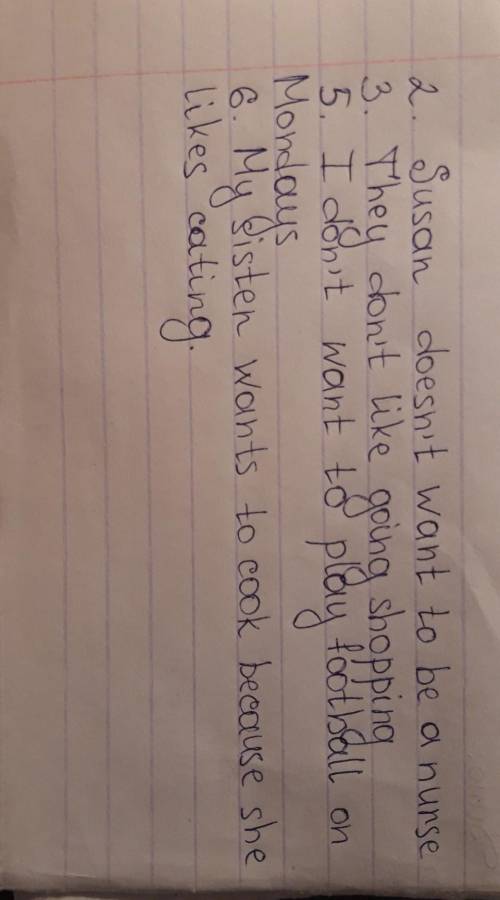 2. Susan doesn't want to be a nurse
3. They don't like going shopping
5. I don't want to play football on
Mondays
6. My sisten wants to cook because she
likes cating.